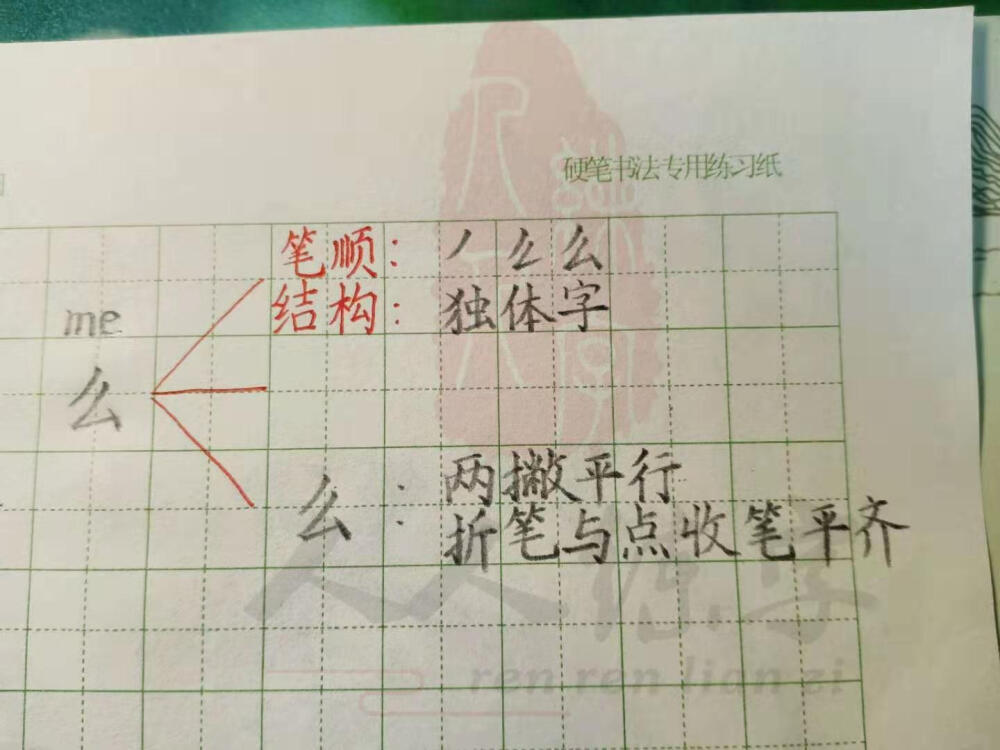 硬笔书法专用练习纸
笔顺：丿 么 么
结构：独体字
me
么
么：两撇平行
折笔与点收笔平齐
人人练字
ren ren lian zi